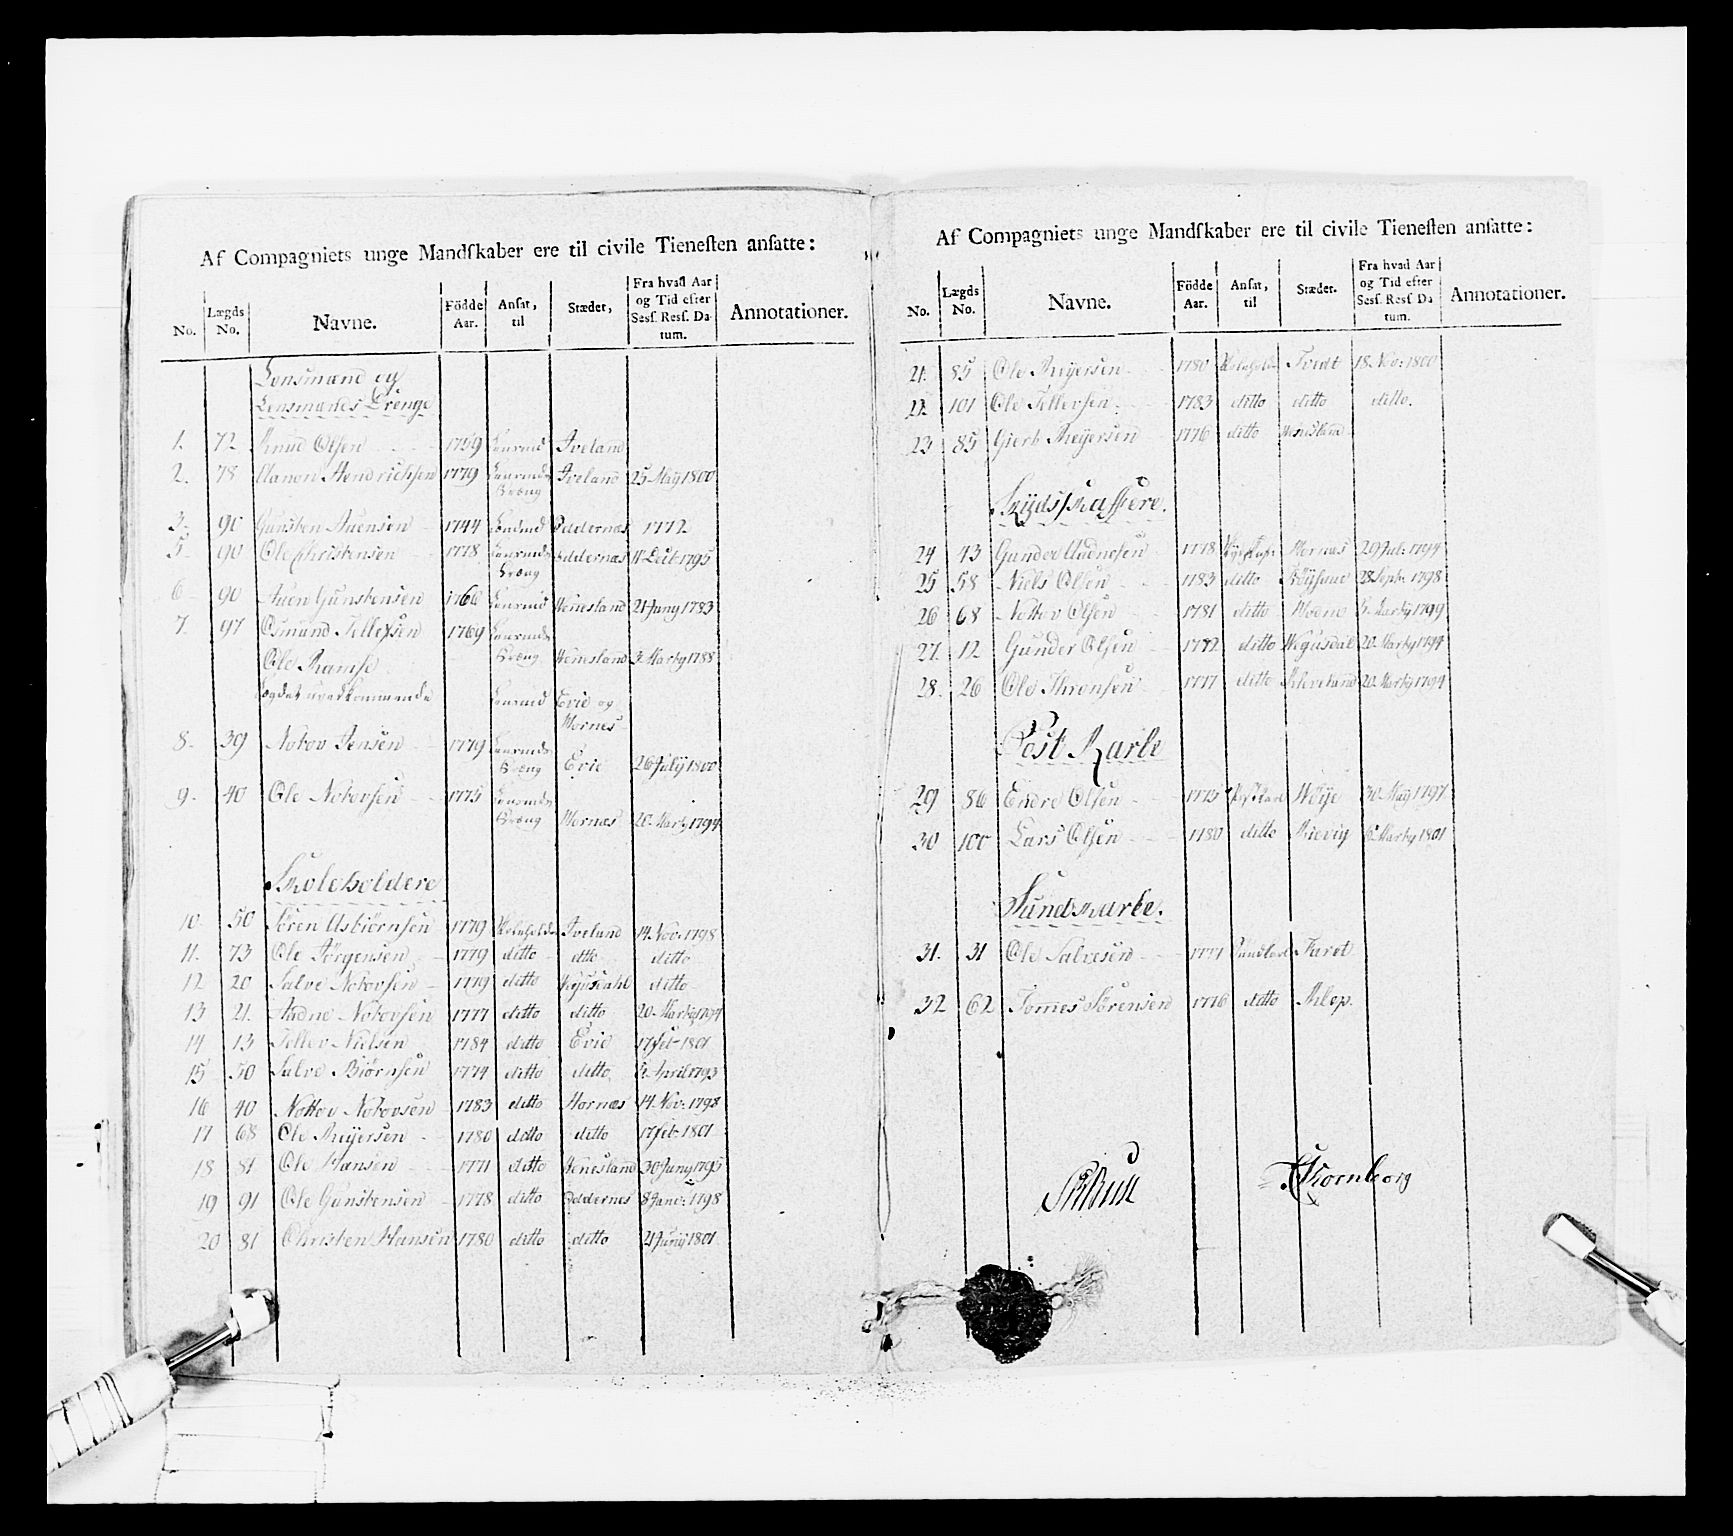 Af Compagniets unge Mandſkaber ere til civile Tieneſten anſatte:
No. Lægds No. Navne. Födde Aar. Anſat, til Stædet, Fra hvad Aar og Tid efter Seſſ. Reſſ. Datum. Annotationer.
Lensmænd og
Lensmands Drenge
1. 72 Knud Olsen 1759 Lensmd Iveland
2. 78 Hendrichsen 1779 Lensmds Dræng Iveland 25 May 1800
3. 90 Gunsten Auensen 1744 Lensmd Oddernæs 1772
5. 90 Ole Christensen 1778 Lensmds Dræng Oddernæs 1795
6 90 Auen Gunstensen 1766 Lensmd Henesland 21 Juny 1783
7. 97 Osmund Tellefsen 1769 Lensmds Dræng Henesland 3 Marty 1788
Ole Ramse
Lægdet uvedkommende Lensmd Evie og
Hornes
8. 39 Notov Jensen 1779 Lensmds Dræng Evie 26 July 1800
9. 40 Ole Notovsen 1775 Lensmds Dræng Hornæs 20 Marty 1794
Skoleholdere
10 50 Sören Asbiörnsen 1779 Skoleholder Iveland 14 Nov: 1798
11. 73 Ole Jörgensen 1779 ditto ditto ditto
12 20 Salve Notovsen 1779 ditto Vegusdahl ditto
13 21. Aadne Notovsen 1777 ditto ditto 20 Marty 1794
14 13 Tellev Nielsen 1784 ditto Evie 17 Feb 1801
15 50 Salve Biörnsen 1774 ditto ditto 5 April 1793
16 40 Nottov Notovsen 1783 ditto Hornæs 14 Nov: 1798
17 68 Ole Reyersen 1780 ditto ditto 17 Feb 1801
18 81 Ole Hansen 1771 ditto Henesland 30 Juny 1795
19 91 Ole Gunstensen 1778 ditto Oddernes 8 Janv: 1798
20 81 Christen Hansen 1780 ditto ditto 21 Juny 1801
Af Compagniets unge Mandſkaber ere til civile Tieneſten anſatte:
No. Lægds No. Navne. Födde Aar. Anſat, til Stædet. Fra hvad Aar og Tid efter Seſſ. Reſſ. Datum. Annotationer.
21. 85 Ole Reyersen 1780 Skoleholder Tvedt 18 Nov: 1800
22 101 Ole Tellevsen 1783 ditto ditto ditto.
23 85 Gierb Reyersen 1776 ditto Henesland
Skyds Skaffere.
24 43 Gunder Aadnesen 1778 Hornæs 29 Jul: 1794
25 58 Niels Olsen 1783 ditto 28 Septr 1798
26 68 Nottov Olsen 1781 ditto Moene 5 Marty 1799
27. 12 Gunder Olsen 1772 ditto Vegusdal 20 Marty 1794
28. 26 Ole Thronsen 1777 ditto 20 Marty 1794
Post Karle
29 86 Endre Olsen 1775 Postkarl Höije 30 May 1797
30 100 Lars Olsen 1780 ditto 6 Marty 1801
Sundkarle.
31. 31 Ole Salvesen 1771 Sundkarl Faret
32 62 Tomes Sörensen 1776 ditto Klep.
Kornberg